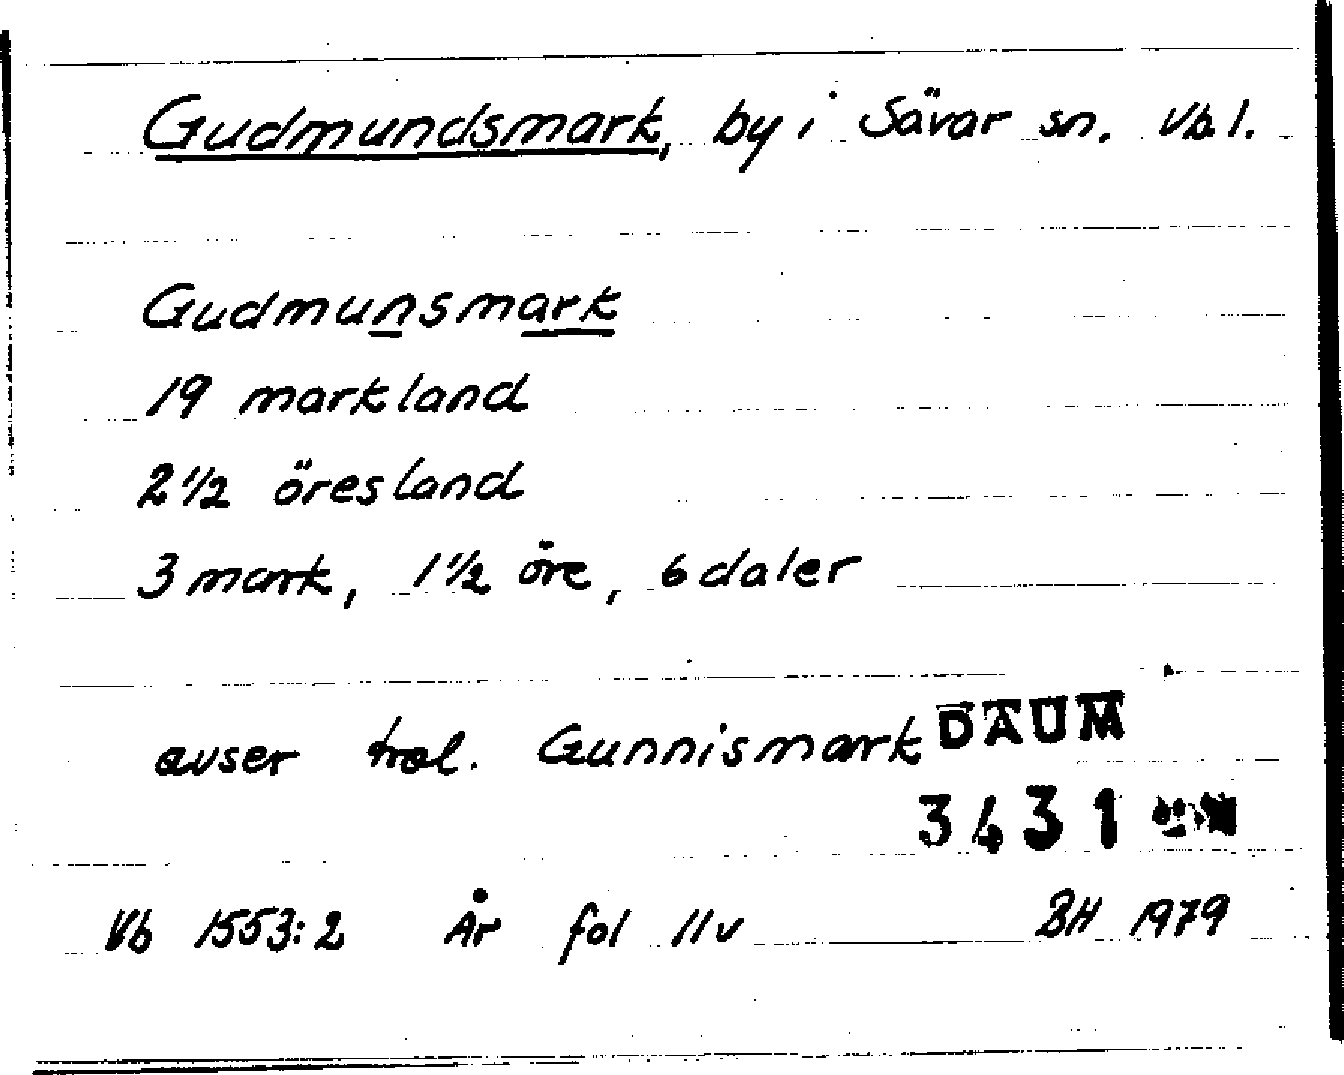 Gudmundsmark, by i Sävar sn. Vb l.
Gudmunsmark
19 markland
2 1/2 öresland
3 mark, 1 1/2 öre, 6 daler
avser trol. Gunnismark DAUM
3431
Vb 1553:2 År fol 11v BH 1979